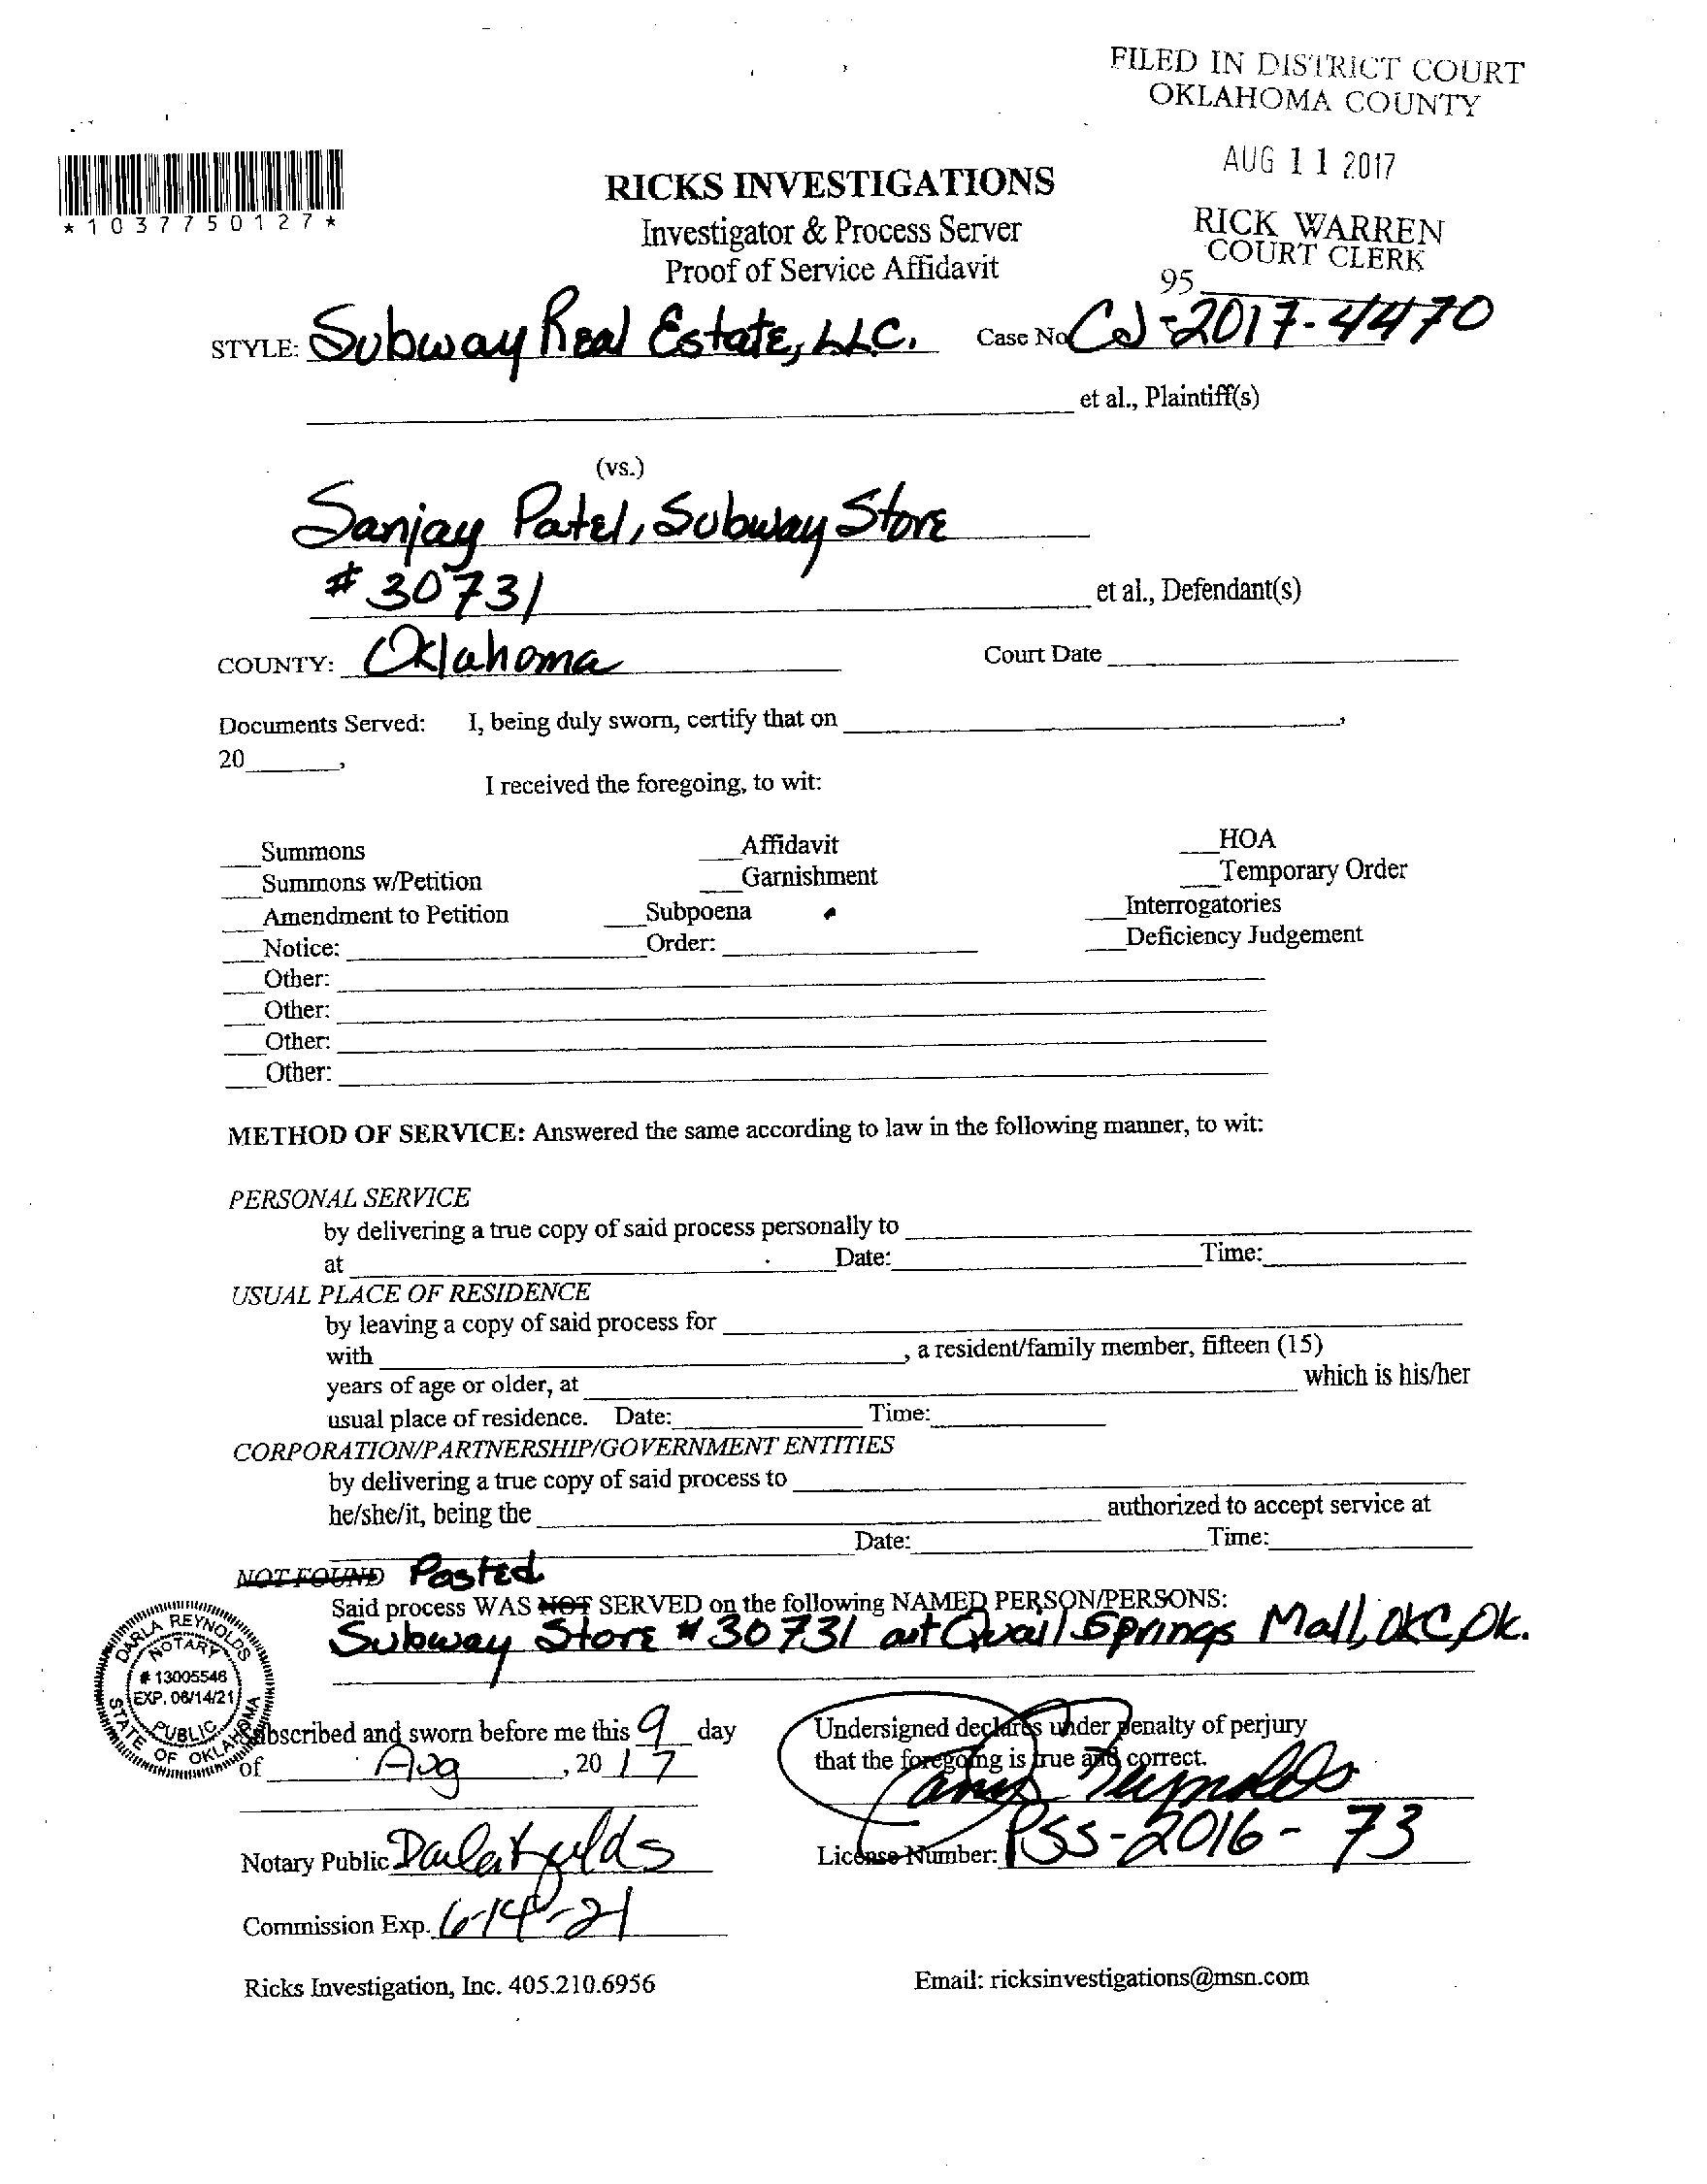 FILED IN DISTRICT COURT
OKLAHOMA COUNTY
AUG 11 2017
RICK WARREN
COURT CLERK
95
*1037750127*
RICKS INVESTIGATIONS
Investigator & Process Server
Proof of Service Affidavit
STYLE: Subway Real Estate, LLC. Case No CJ-2017-4470
et al., Plaintiff(s)
(vs.)
Sanjay Patel, Subway Store
# 30731 et al., Defendant(s)
COUNTY: Oklahoma Court Date
Documents Served: I, being duly sworn, certify that on ,
20 ,
I received the foregoing, to wit:
Summons Affidavit HOA
Summons w/Petition Garnishment Temporary Order
Amendment to Petition Subpoena Interrogatories
Notice: Order: Deficiency Judgement
Other:
Other:
Other:
Other:
METHOD OF SERVICE: Answered the same according to law in the following manner, to wit:
PERSONAL SERVICE
by delivering a true copy of said process personally to
at Date: Time:
USUAL PLACE OF RESIDENCE
by leaving a copy of said process for
with , a resident/family member, fifteen (15)
years of age or older, at which is his/her
usual place of residence. Date: Time:
CORPORATION/PARTNERSHIP/GOVERNMENT ENTITIES
by delivering a true copy of said process to
he/she/it, being the authorized to accept service at
Date: Time:
NOT FOUND Posted
Said process WAS NOT SERVED on the following NAMED PERSON/PERSONS:
Subway Store # 30731 at Quail Springs Mall, OKC, Ok.
DARLA REYNOLDS
NOTARY
# 13005546
EXP. 06/14/21
PUBLIC
STATE OF OKLAHOMA
Subscribed and sworn before me this 9 day
of Aug , 20 17
Undersigned declares under penalty of perjury
that the foregoing is true and correct.
Reynolds
Notary Public
License Number: PSS-2016-73
Commission Exp. 6-14-21
Ricks Investigation, Inc. 405.210.6956 Email: ricksinvestigations@msn.com